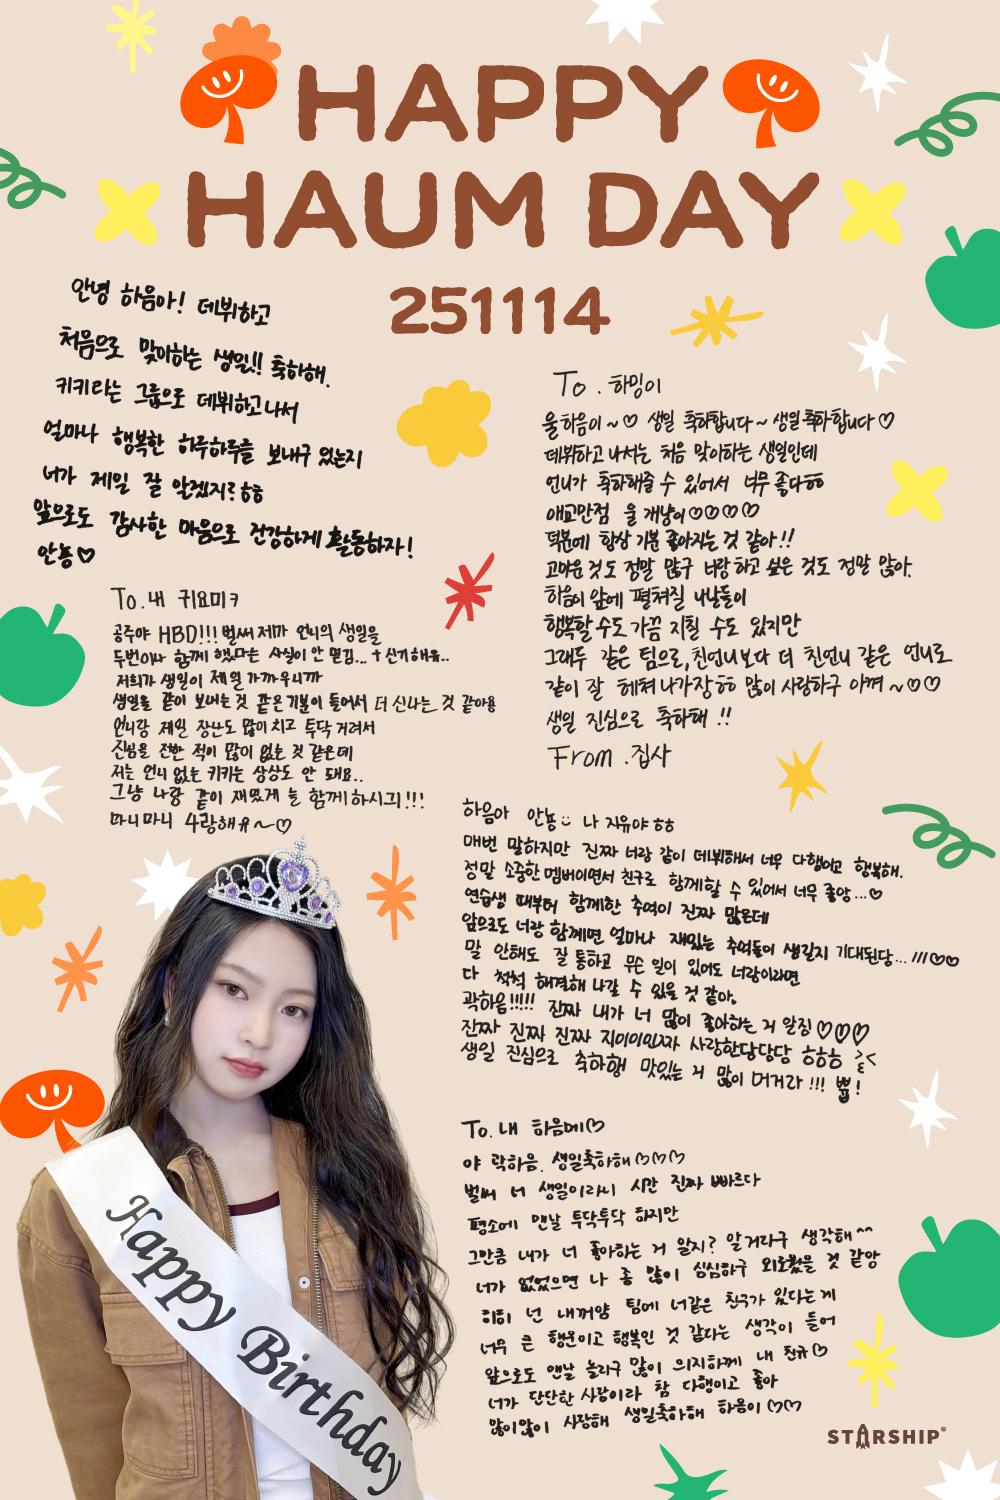 HAPPY
HAUM DAY
251114
안녕 하음아! 데뷔하고
처음으로 맞이하는 생일!! 축하해.
키키라는 그룹으로 데뷔하고나서
얼마나 행복한 하루하루를 보내구 있는지
너가 제일 잘 알겠지? ㅎㅎ
앞으로도 감사한 마음으로 건강하게 활동하자!
안뇽♡
To. 내 귀요미ㅋ
공주야 HBD!!! 벌써 제가 언니의 생일을
두번이나 함께 했다는 사실이 안 믿김... 신기해유..
저희가 생일이 제일 가까우니까
생일을 같이 보내는 것 같은 기분이 들어서 더 신나는 것 같아용
언니랑 제일 장난도 많이 치고 투닥거려서
진심을 전한 적이 많이 없는 것 같은데
저는 언니 없는 키키는 상상도 안 돼요..
그냥 나랑 같이 재밌게 늘 함께하시긔!!!
마니마니 사랑해유~♡
To. 하밍이
울 하음이~♡ 생일 축하합니다~ 생일 축하합니다♡
데뷔하고 나서는 처음 맞이하는 생일인데
언니가 축하해줄 수 있어서 너무 좋다ㅎㅎ
애교만점 울 개냥이♡♡♡♡
덕분에 항상 기분 좋아지는 것 같아!!
고마운 것도 정말 많구 너랑 하고 싶은 것도 정말 많아.
하음이 앞에 펼쳐질 나날들이
행복할 수도 가끔 지칠 수도 있지만
그래두 같은 팀으로, 친언니보다 더 친언니 같은 언니로
같이 잘 헤쳐나가장ㅎㅎ 많이 사랑하구 아껴~♡♡
생일 진심으로 축하해!!
From. 집사
하음아 안뇽 나 지유야 ㅎㅎ
매번 말하지만 진짜 너랑 같이 데뷔해서 너무 다행이고 행복해.
정말 소중한 멤버이면서 친구로 함께할 수 있어서 너무 좋앙...♡
연습생 때부터 함께한 추억이 진짜 많은데
앞으로도 너랑 함께면 얼마나 재밌는 추억들이 생길지 기대된당...!!!♡♡
말 안해도 잘 통하고 무슨 일이 있어도 너랑이라면
다 척척 해결해 나갈 수 있을 것 같아.
곽하음!!!!! 진짜 내가 너 많이 좋아하는 거 알징♡♡♡
진짜 진짜 진짜 지이이인짜 사랑한당당당 ㅎㅎㅎ
생일 진심으로 축하행 맛있는 거 많이 머거라!!! 뿁!
To. 내 하음메♡
야 곽하음. 생일축하해♡♡♡
벌써 너 생일이라니 시간 진짜 빠르다
평소에 맨날 투닥투닥 하지만
그만큼 내가 너 좋아하는 거 알지? 알거라구 생각해^^
너가 없었으면 나 좀 많이 심심하구 외로웠을 것 같앙
히히 넌 내꺼양 팀에 너같은 친구가 있다는게
너무 큰 행운이고 행복인 것 같다는 생각이 들어
앞으로도 맨날 놀리구 많이 의지하께 내 친규♡
너가 단단한 사람이라 참 다행이고 좋아
많이많이 사랑해 생일축하해 하음이♡♡
Happy Birthday
STARSHIP